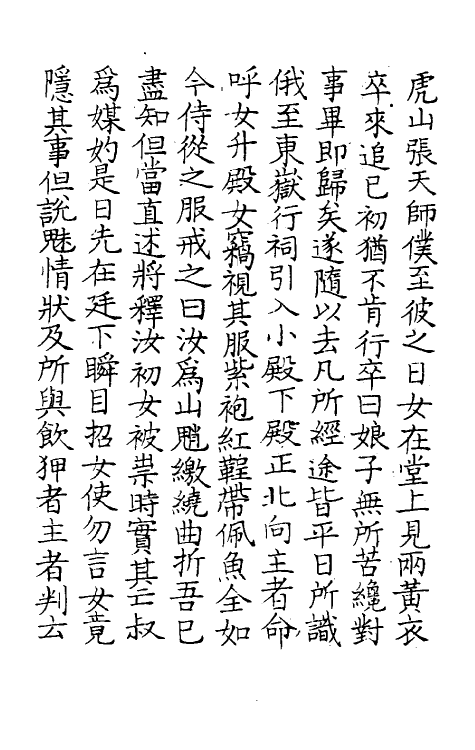 虎山張天師僕至彼之日女在堂上見兩黃衣
卒來追已初猶不肯行卒曰娘子無所苦纔對
事畢即歸矣遂隨以去凡所經途皆平日所識
俄至東嶽行祠引入小殿下殿正北向主者命
呼女升殿女竊視其服紫袍紅鞓帶佩魚全如
今侍從之服戒之曰汝爲山魈繳繞曲折吾已
盡知但當直述將釋汝初女被祟時實其亡叔
爲媒妁是日先在廷下瞬目招女使勿言女竟
隱其事但說魅情狀及所與飲狎者主者判云